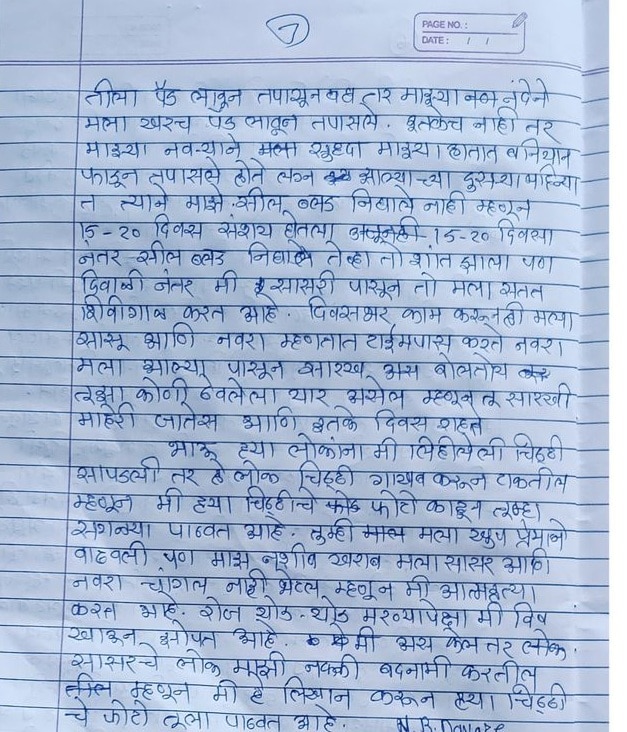 7
PAGE NO. :
DATE : / /
तीला पॅड लावून तपासून बघ तर माझ्या नंदेने
मला खरच पॅड लावून तपासले. इतकेच नाही तर
माझ्या नवऱ्याने सुध्दा माझ्या हातात
फाडून तपासले होते लग्न झाल्याच्या दुसऱ्या महिन्या
त त्याने माझे सील ब्लड निघाले नाही म्हणून
15-20 दिवस संशय घेतला 15-20 दिवसा
नंतर सील ब्लड निघाले तेव्हा तो शांत झाला पण
दिवाळी नंतर मी सासरी पासून तो मला सतत
शिवीगाळ करत आहे. दिवसभर काम करूनही मला
सासू आणि नवरा म्हणतात टाईमपास करते नवरा
मला आल्या पासून सारख अस बोलतोय
तूझा कोणी ठेवलेला यार असेल म्हणून तू सारखी
माहेरी जातेस आणि इतके दिवस राहते
भाऊ हया लोकांना मी लिहीलेली चिठ्ठी
सापडली तर हे लोक चिठ्ठी गायब करून टाकतील
म्हणून मी हया चिठ्ठीचे फोटो काढून तूम्हा
सगळ्या पाठवत आहे. तूम्ही मला खुप प्रेमाने
वाढवली पण माझ नशीब खराब मला सासर आणि
नवरा चांगल नाही भेटल म्हणून मी आत्महत्या
करत आहे. रोज थोड-थोड मरण्यापेक्षा मी विष
खाऊन झोपत आहे. मी अस केल तर लोक
सासरचे लोक माझी नक्की बदनामी करतील
म्हणून मी हे लिखान करून हया चिठ्ठी
चे फोटो तूला पाठवत आहे. N.B.